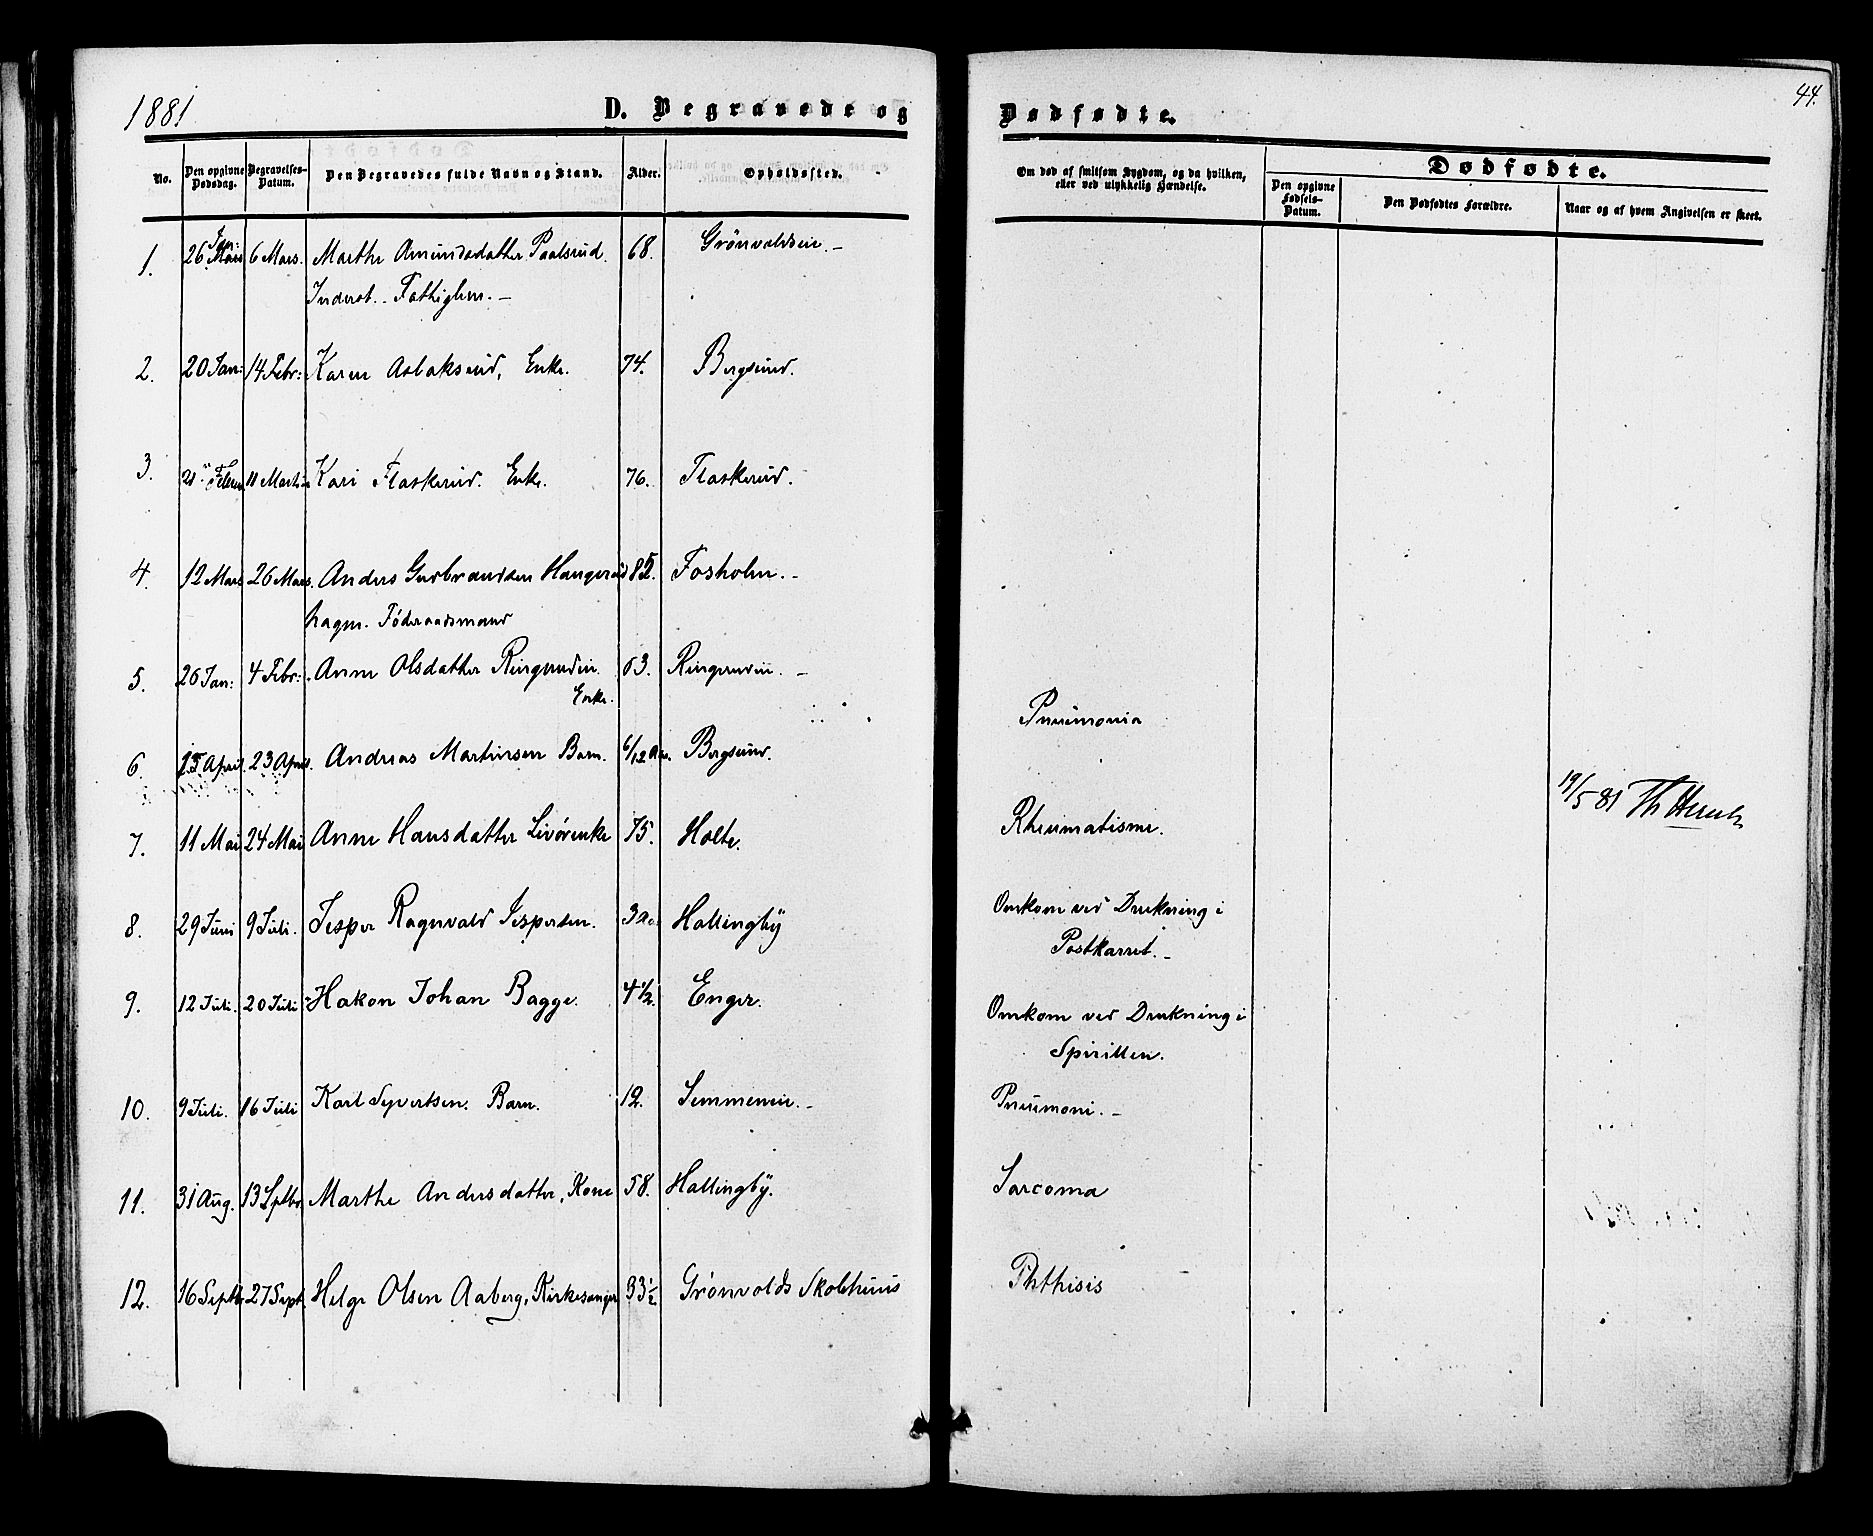 1881
D. Begravede og Dødfødte.
44.
No. | Den opgivne Dødsdag. | Begravelses-Datum. | Den Begravedes fulde Navn og Stand. | Alder. | Opholdssted. | Om død af smitsom Sygdom, og da hvilken, eller ved ulykkelig Hændelse. | Dødfødte.
Den opgivne Fødsels-Datum. | Den Dødfødtes Forældre. | Naar og af hvem Angivelsen er skeet.
1. | 26 Jan: | 6 Mars. | Marthe Amundsdatter Paalsrud. | 68. | Grönvoldseie.-
Inderst.. Fattiglem.-
2. | 20 Jan: | 14 Febr: | Karen Aslaksrud, Enke. | 74. | Bergsund.
3. | 21 | 11 | Kari Flaskerud. Enke. | 76. | Flaskerud.
4. | 12 Mars | 26 Mars. | Anders Gudbrandsen Haugerud | 85. | Fosholm.-
hagen. Föderaadsmand
5. | 26 Jan: | 4 Febr: | Anne Olsdatter Ringerudeie. | 63. | Ringerudeie.-
Enke. | Pneumonia
6. | 15 April. | 23 April. | Andreas Martinsen Barn. | 6/12 Aar. | Bergsund.
7. | 11 Mai | 24 Mai | Anne Hansdatter Livörenke | 75. | Holte. | Rheumatisme. | 19/5 81 Th
8. | 29 Juni | 9 Juli. | Jesper Ragnvald Jespersen. | 3 Aar | Hallingby | Omkom ved Drukning i
Postkarret.-
9. | 12 Juli. | 20 Juli | Hakon Johan Bagge. | 4 1/2. | Enger. | Omkom ved Drukning i
Spirillen.
10. | 9 Juli. | 16 Juli | Karl Syvertsen. Barn. | 12. | Semmeneie.- | Pneumoni.-
11. | 31 Aug. | 13 Septbr. | Marthe Andersdatter, Kone | 58. | Hallingby. | Sarcoma
12. | 16 Septbr. | 27 Sept. | Helge Olsen Aaberg, Kirkesanger | 33 1/2 | Grönvolds Skolehuus | Phthisis